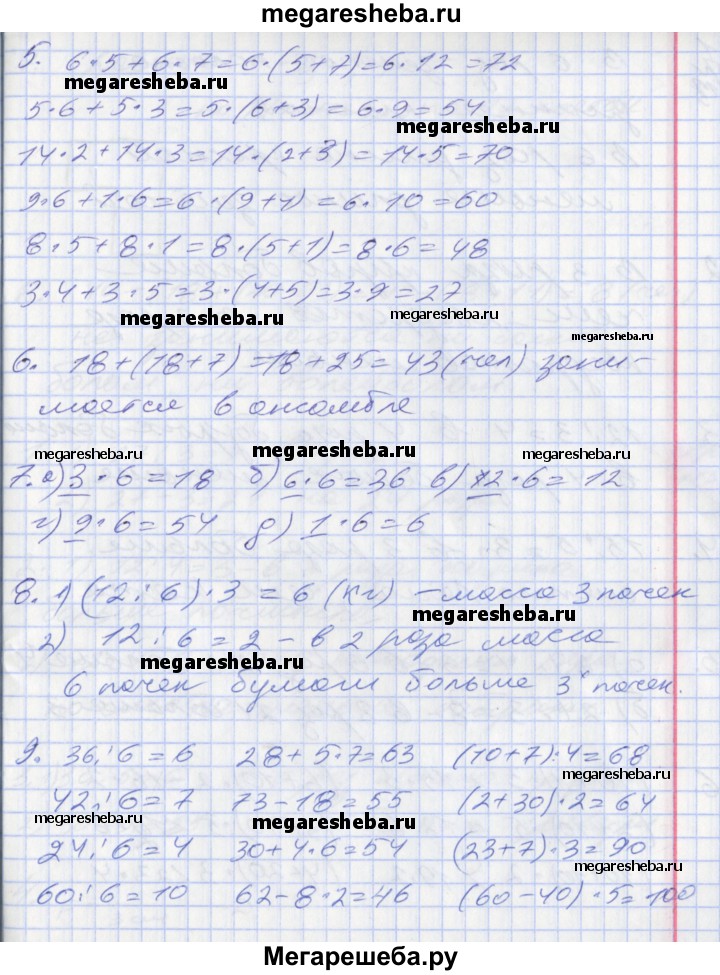 megaresheba.ru
5. 6·5+6·7=6·(5+7)=6·12=72
megaresheba.ru
5·6+5·3=5·(6+3)=6·9=54
megaresheba.ru
14·2+14·3=14·(2+3)=14·5=70
9·6+1·6=6·(9+1)=6·10=60
8·5+8·1=8·(5+1)=8·6=48
3·4+3·5=3·(4+5)=3·9=27
megaresheba.ru megaresheba.ru
megaresheba.ru
6. 18+(18+7)=18+25=43(чел) зани-
мается в ансамбле
megaresheba.ru megaresheba.ru megaresheba.ru
7. а) 3·6=18 б) 6·6=36 в) 12·6=12
г) 9·6=54 д) 1·6=6
8. 1) (12:6)·3=6 (кг) – масса 3 пачек
megaresheba.ru
2) 12:6=2 – в 2 раза масса
megaresheba.ru
6 пачек бумаги больше 3 пачек.
9. 36:6=6 28+5·7=63 (10+7)·4=68
megaresheba.ru
42:6=7 73-18=55 (2+30)·2=64
megaresheba.ru megaresheba.ru
24:6=4 30+4·6=54 (23+7)·3=90
megaresheba.ru
60:6=10 62-8·2=46 (60-40)·5=100
Мегарешеба.ру